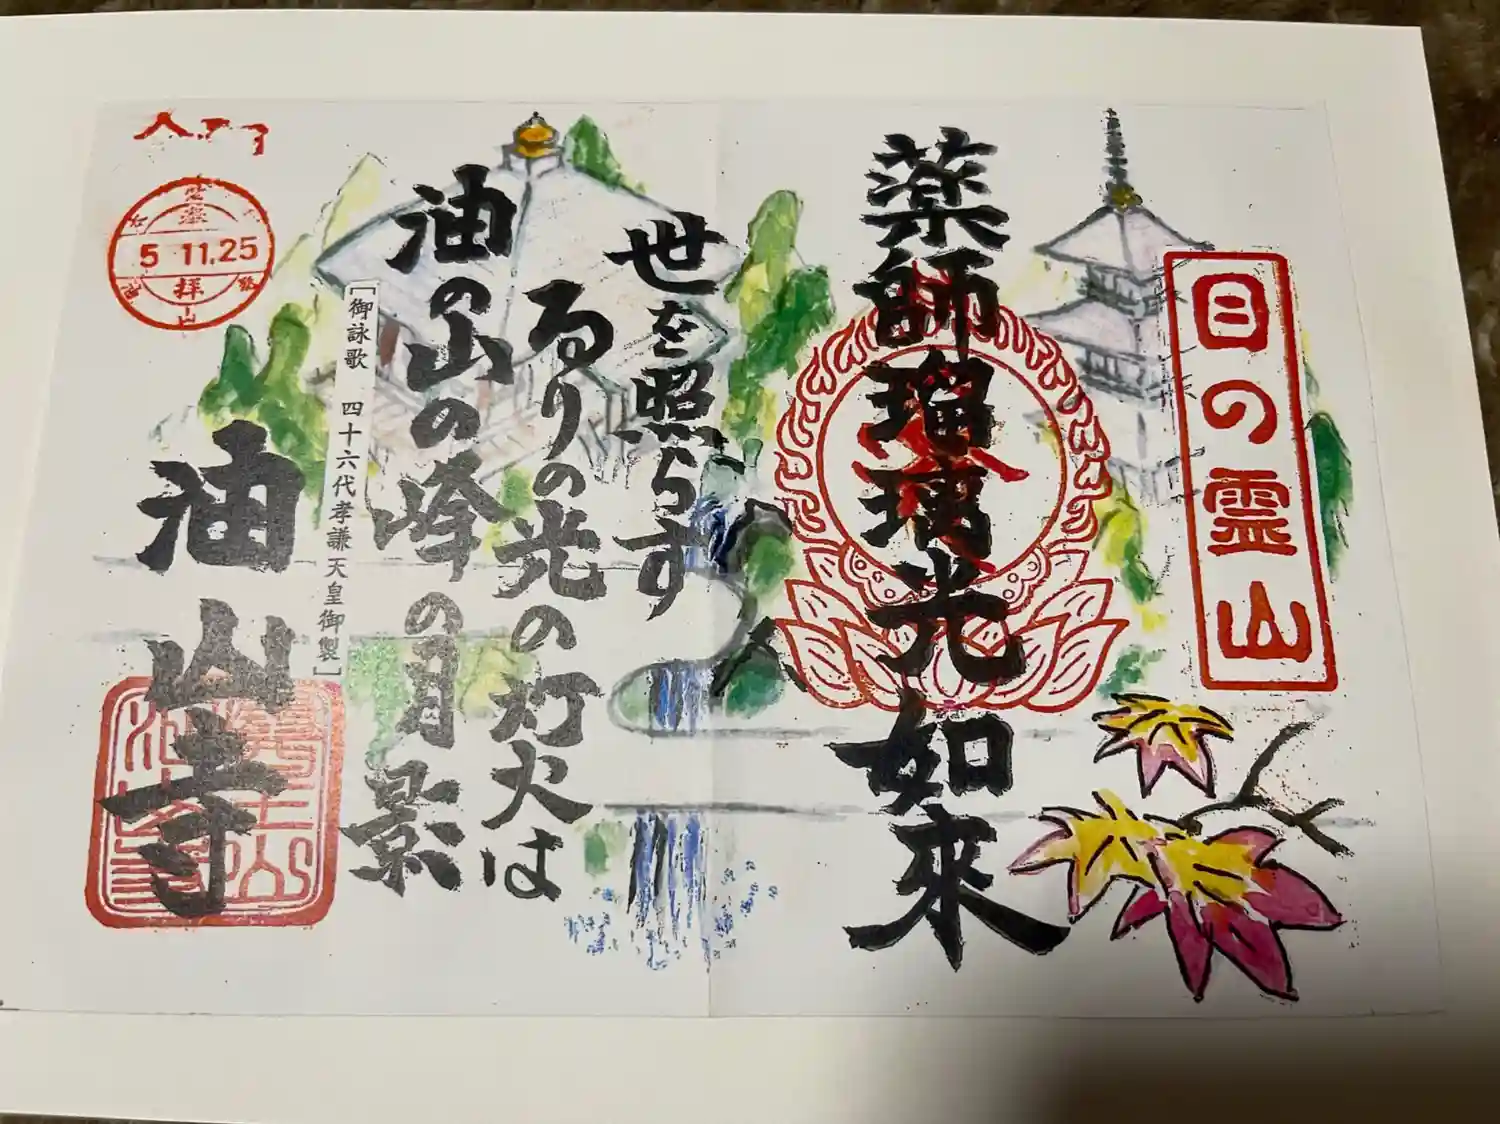 目の霊山
薬師瑠璃光如來
世を照らす
るりの光の灯火は
油の山の峰の月影
「御詠歌 四十六代孝謙天皇御製」
油山寺
5.11.25
拝
山